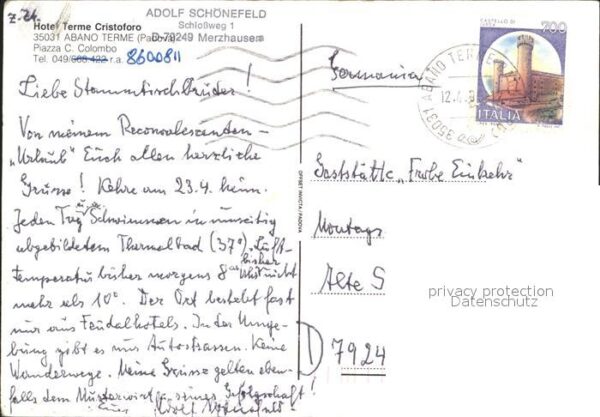 z. Zt.
ADOLF SCHÖNEFELD
Schloßweg 1
D-79249 Merzhausen
Hotel Terme Cristoforo
35031 ABANO TERME (Padova)
Piazza C. Colombo
Tel. 049/668 422 r.a. 8600811
Liebe Stammtischbrüder!
Von meinem Reconvaleszenten-
"Urlaub" Euch allen herzliche
Grüsse! Kehre am 23.4. heim.
Jeden Tag Schwimmen in umseitig
abgebildetem Thermalbad (37°). Luft-
temperatur bisher morgens 8° nicht
mehr als 10°. Der Ort besteht fast
nur aus Feudalhotels. In der Umge-
bung gibt es nur Autostrassen. Keine
Wanderwege. Meine Grüsse gelten eben-
falls dem Musterwirt u. seiner Gefolgschaft!
Euer Adolf Schönefeld
OFFSET INVICTA / PADOVA
Germania
CASTELLO DI
700
ITALIA
35031 ABANO TERME
12.4.
Gaststätte "Frohe Einkehr"
Montags
Alte S
privacy protection
Datenschutz
D 7924